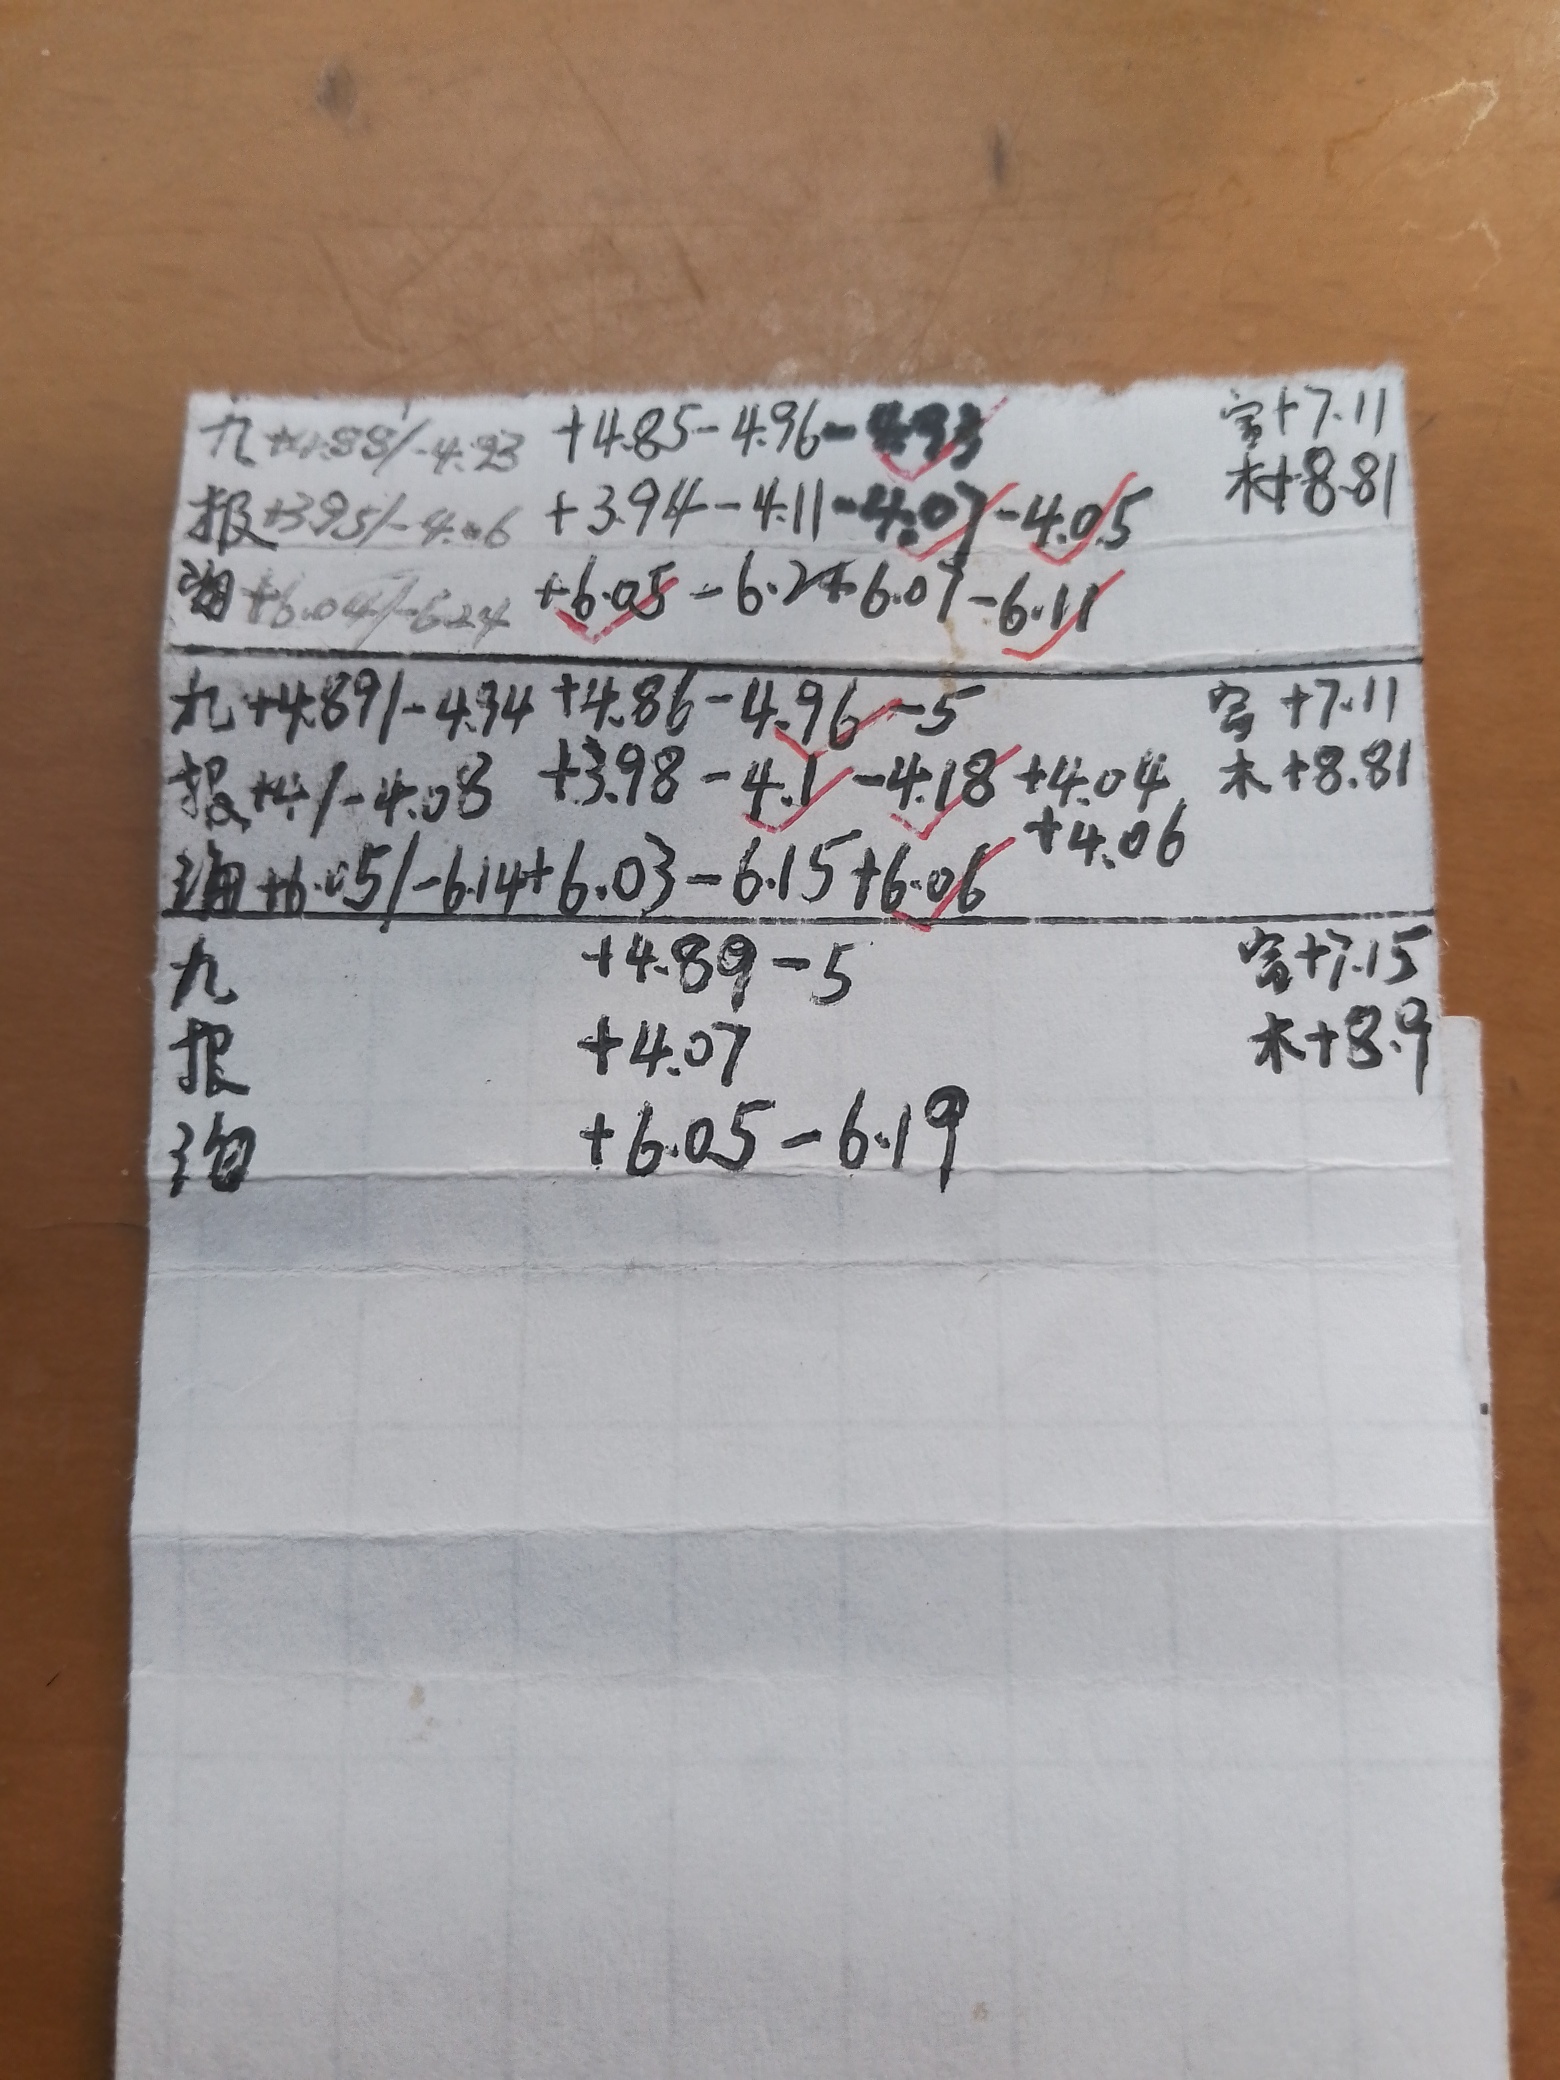 九 +4.88/-4.93 +4.85-4.96-4.93 富+7.11
报+3.95/-4.06 +3.94-4.11-4.07-4.05 木+8.81
+6.04/-6.24 +6.05-6.2+6.07-6.11
九+4.89/-4.94+4.86-4.96-5 富+7.11
报+4/-4.08 +3.98-4.1-4.18+4.04 木+8.81
+4.06
海+6.05/-6.14+6.03-6.15+6.06
九 +4.89-5 富+7.15
报 +4.07 木+8.9
+6.05-6.19